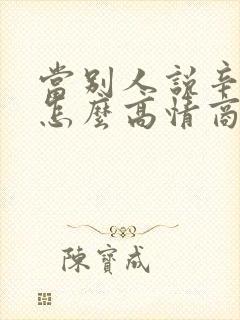 當別人說辛
怎麼高情商
陳寶成